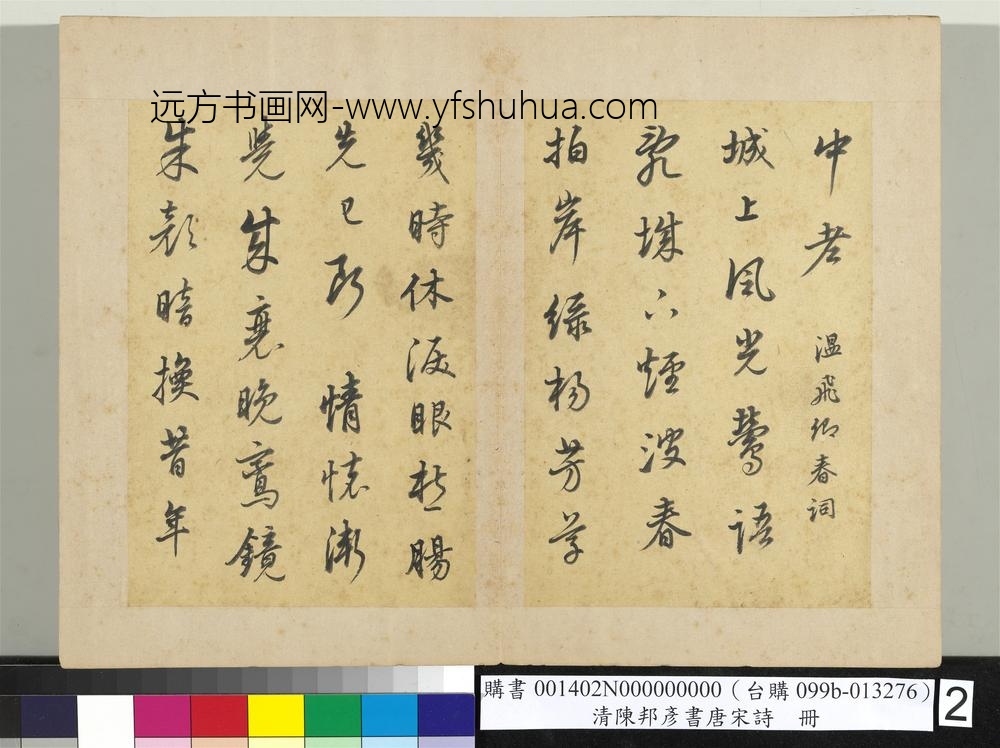 远方书画网-www.yfshuhua.com
中老 温飛卿春詞
城上風光鶯語
亂城下煙波春
拍岸綠楊芳草
幾時休淚眼愁腸
先已斷 情懷漸
覺成衰晚鸞鏡
朱顏暗換昔年
購書 001402N000000000（台購 099b-013276）
清陳邦彥書唐宋詩 冊
2